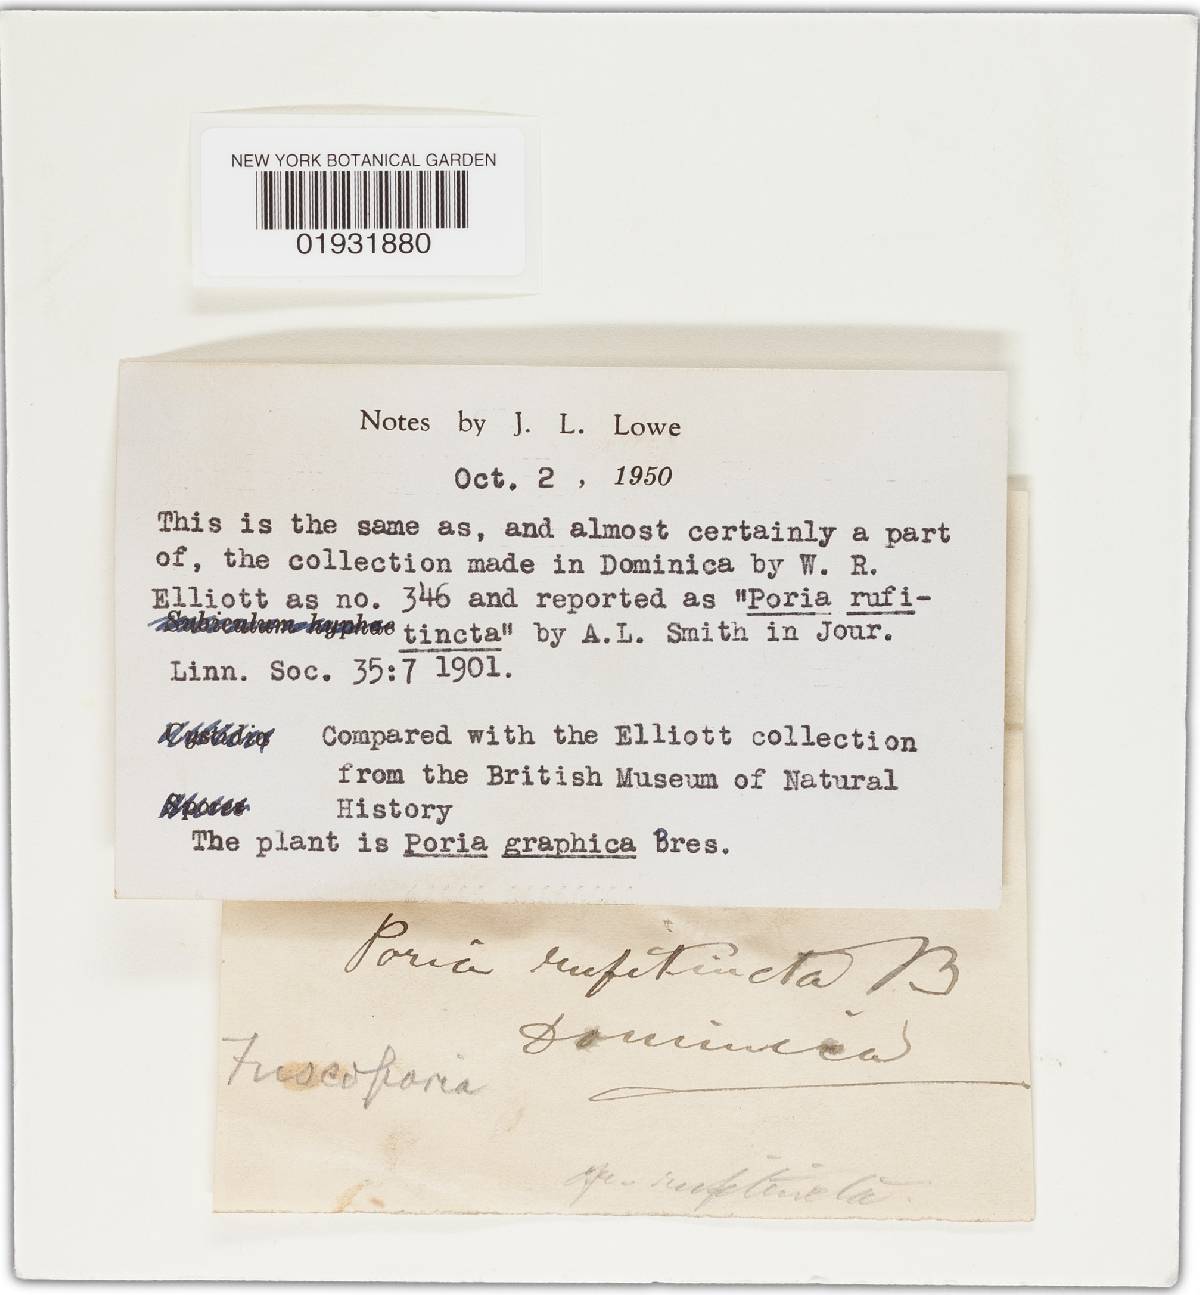 NEW YORK BOTANICAL GARDEN
01931880
Notes by J. L. Lowe
Oct. 2 , 1950
This is the same as, and almost certainly a part
of, the collection made in Dominica by W. R.
Elliott as no. 346 and reported as "Poria rufi-
Subiculum hyphae tincta" by A.L. Smith in Jour.
Linn. Soc. 35:7 1901.
Cystidia Compared with the Elliott collection
from the British Museum of Natural
Spores History
The plant is Poria graphica Bres.
Poria rufitincta B
Dominica
Fuscoporia
rufitincta